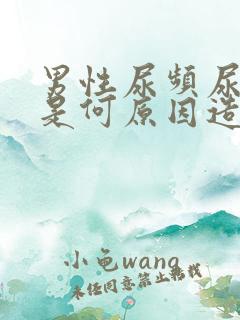 男性尿频尿
是何原因造
小龟wang
未经同意禁止转载